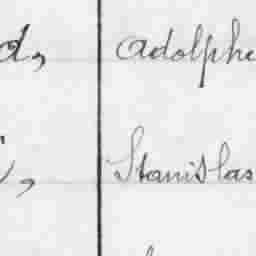 d, Adolphe
, Stanislas